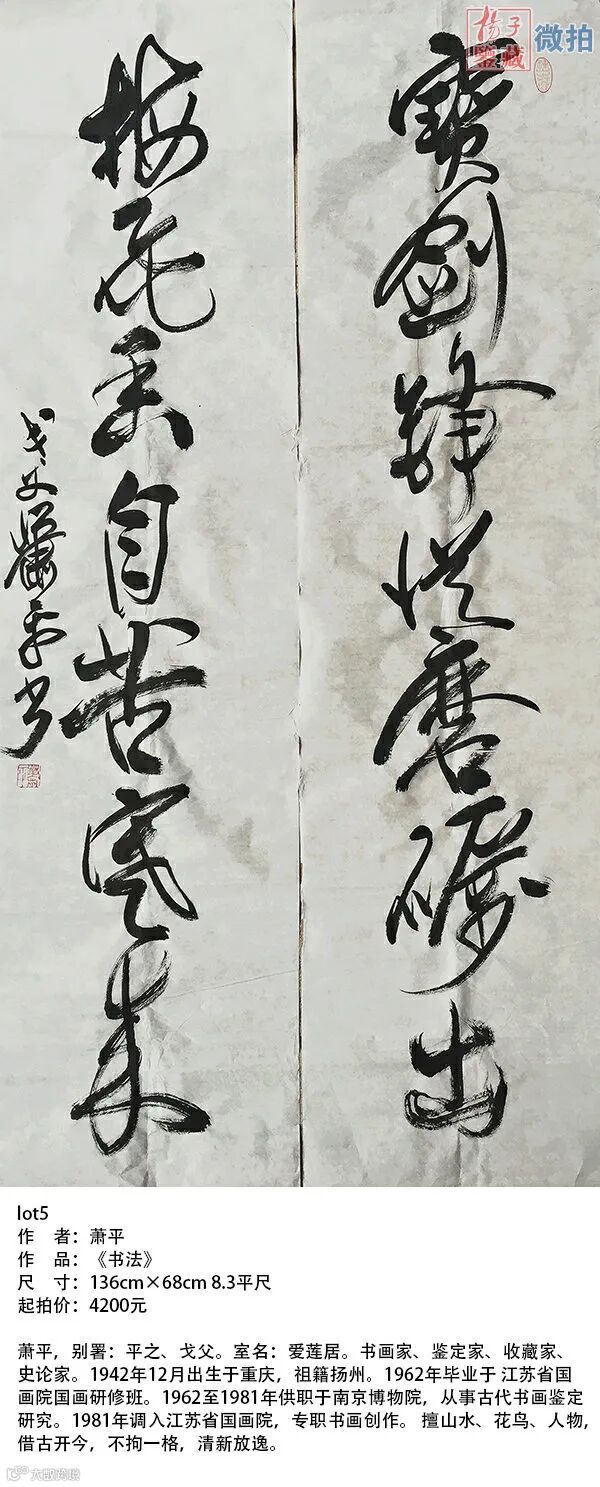 扬子
鉴藏
微拍
寶劍鋒從磨礪出
梅花香自苦寒来
戈父蕭平书
lot5
作 者：萧平
作 品：《书法》
尺 寸：136cm×68cm 8.3平尺
起拍价：4200元
萧平，别署：平之、戈父。室名：爱莲居。书画家、鉴定家、收藏家、
史论家。1942年12月出生于重庆，祖籍扬州。1962年毕业于 江苏省国
画院国画研修班。1962至1981年供职于南京博物院，从事古代书画鉴定
研究。1981年调入江苏省国画院，专职书画创作。 擅山水、花鸟、人物,
借古开今，不拘一格，清新放逸。
大数跨境